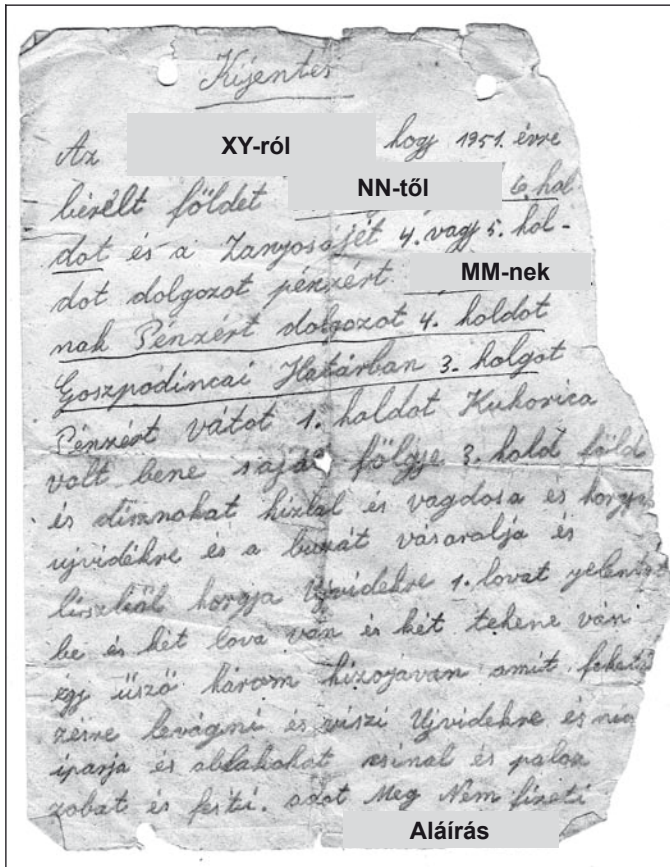 Kijentés
Az XY-ról hogy 1951. évre
bérélt földet NN-től 6. hol
dot és a Zanyosájét 4. vagy 5. hol-
dot dolgozot pénzért MM-nek
nak Pénzért dolgozot 4. holdot
Goszpodincai Határban 3. holgot
Pénzért vátot 1. holdot Kukorica
volt bene saját fölgye 3. hold föld
és disznokat hizlal és vagdosa és horgya
ujvidékre és a buzát vásaralja és
horgya Ujvidekre 1. lovat jelentet
be és két lova ván és két tehene ván
égy üsző három hizojaván amit feketé
zésre levágni és viszi Ujvidekre és
iparja és ablakokat csinál és
zobat és festi. adot Meg Nem fizeti
Aláírás